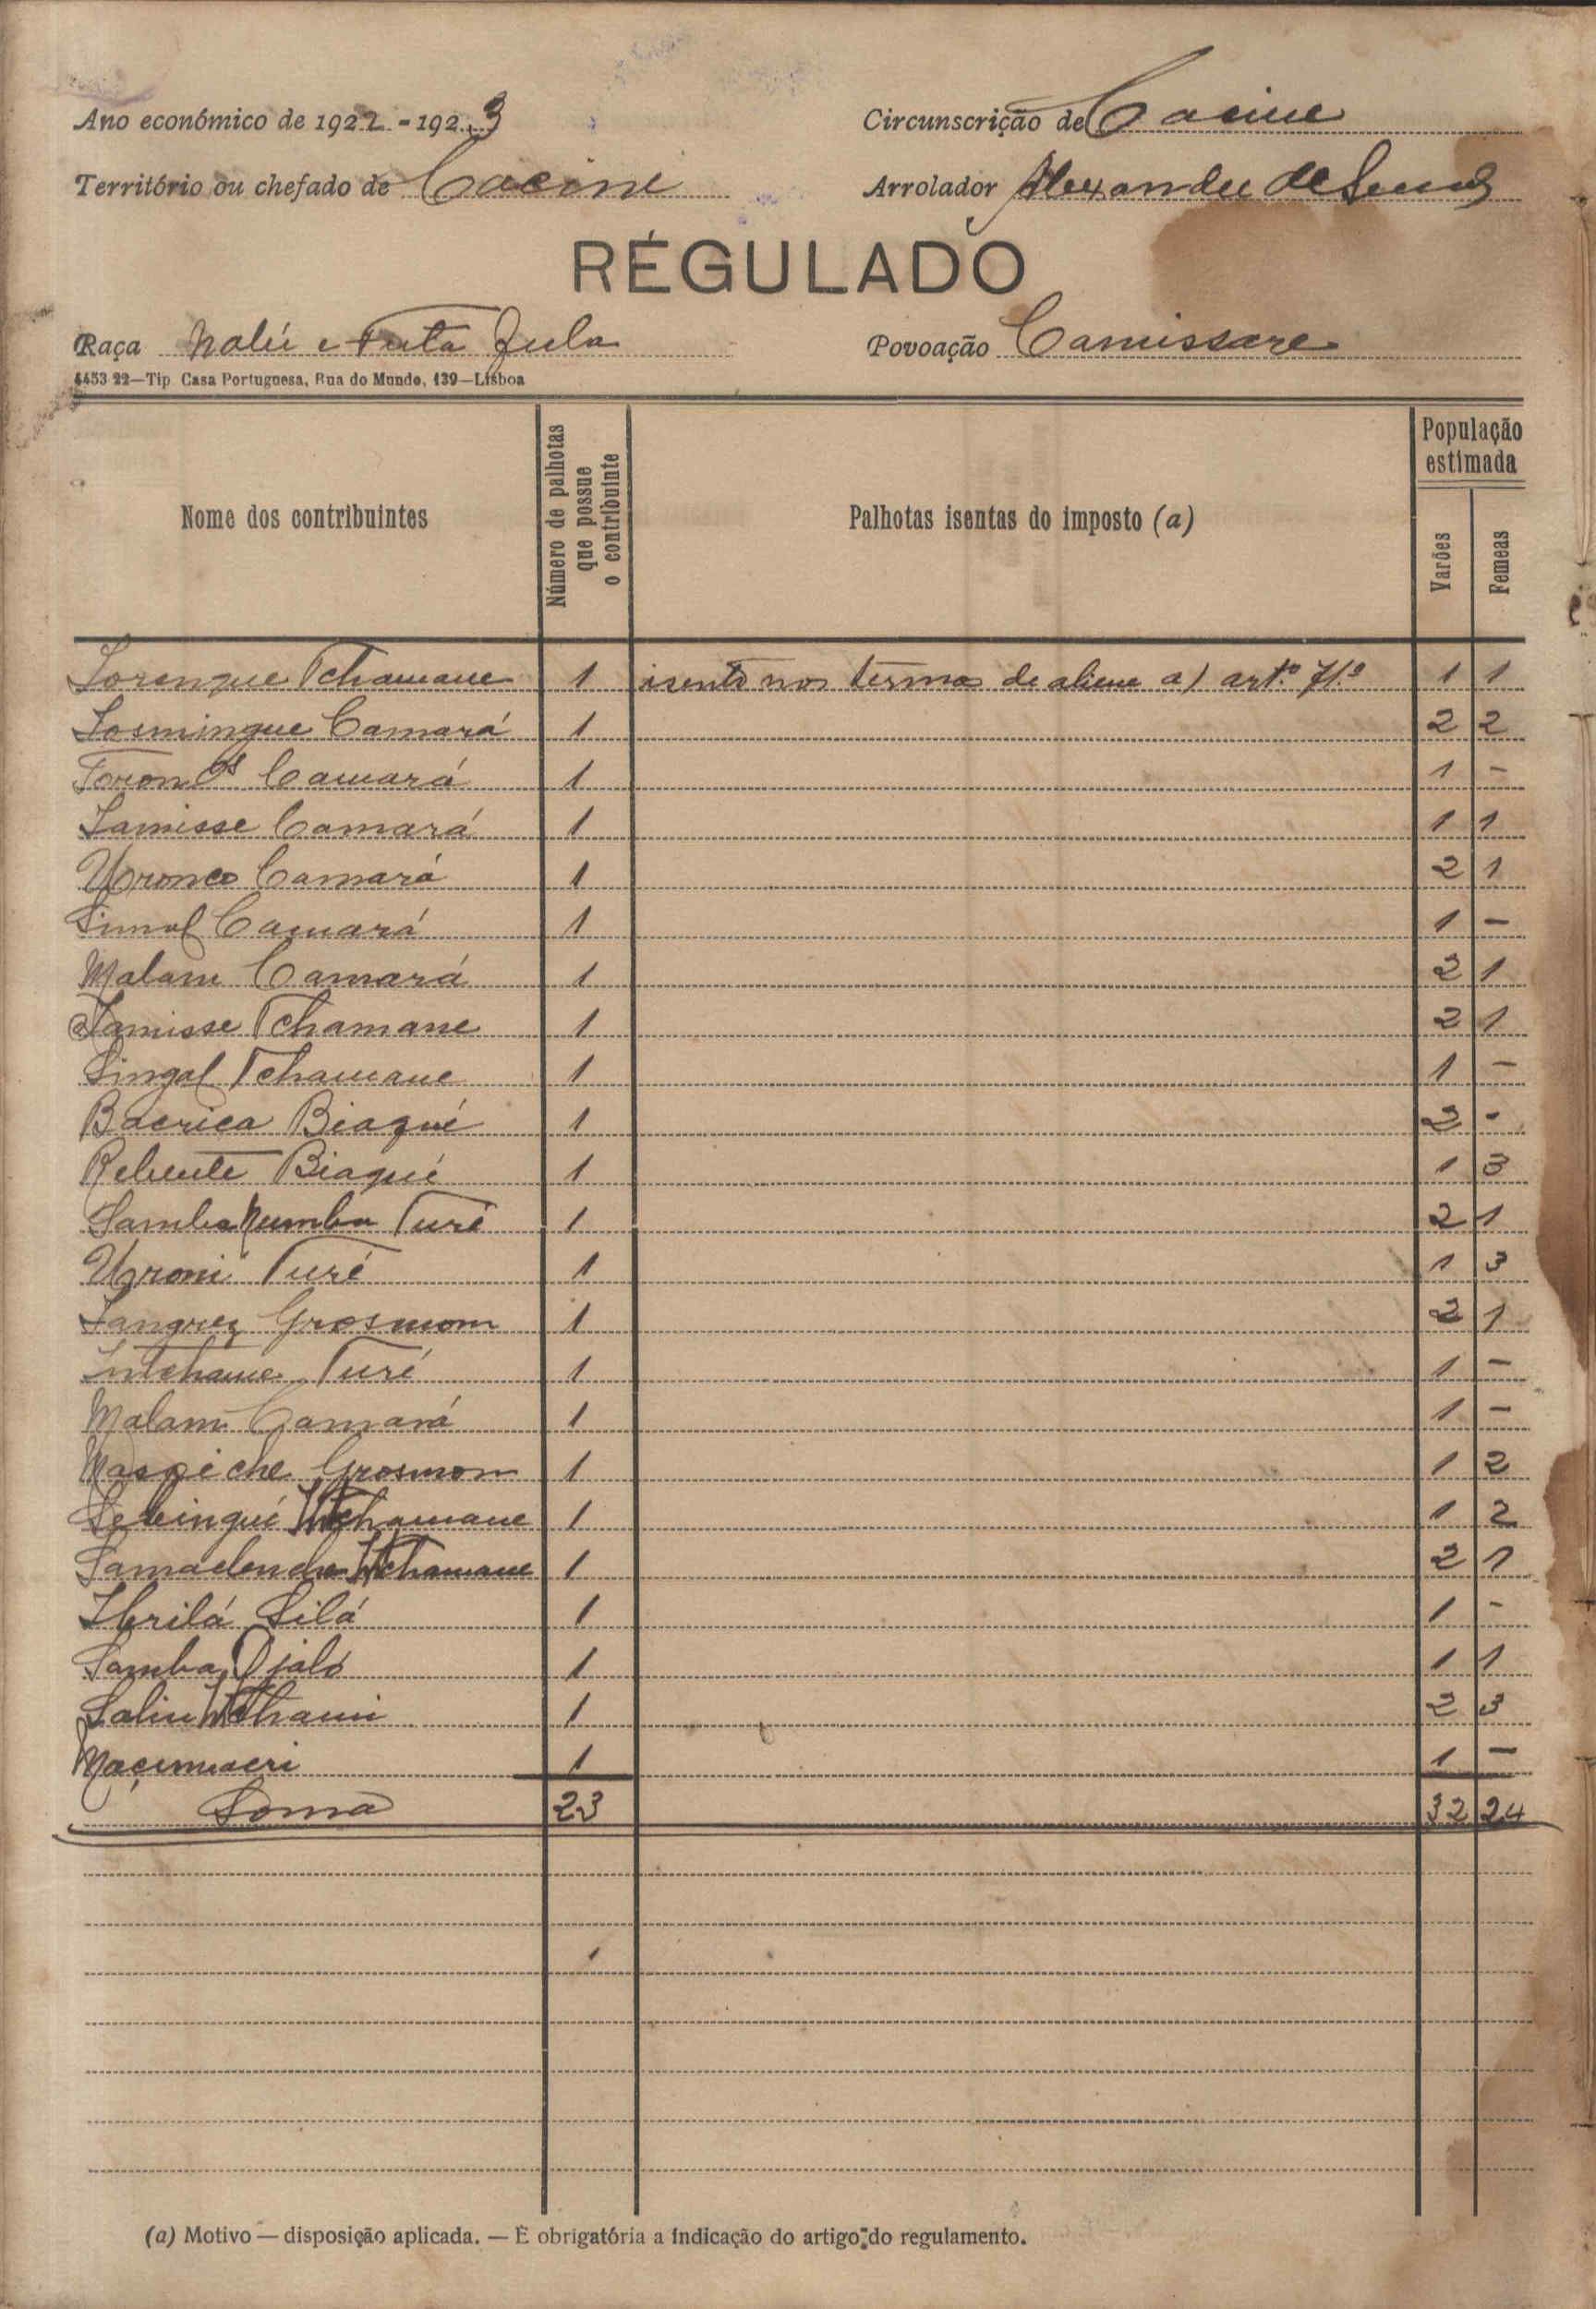 Ano económico de 1922-1923
Circunscrição de Cacine
Território ou chefado de Cacine
Arrolador Alexandre de
RÉGULADO
Raça Nalú e Futa Fula
Povoação Camissare
4453 22—Tip Casa Portuguesa, Rua do Mundo, 139—Lisboa
Nome dos contribuintes
Número de palhotas que possue o contribuinte
Palhotas isentas do imposto (a)
População estimada
Varões
Femeas
Lorenque Tchamane 1 isento nos termos de aliene a) artº 71º 1 1
Losmingue Camará 1 2 2
Camará 1 1 -
Lamisse Camará 1 1 1
Camará 1 2 1
Simol Camará 1 1 -
Malam Camará 1 2 1
Lamisse Tchamane 1 2 1
Singal Tchamane 1 1 -
Bacrica Biaqué 1 2 -
Biaqué 1 1 3
Samba Numba Turé 1 2 1
Turé 1 1 3
Grosmom 1 2 1
Intchame Turé 1 1 -
Malam Camará 1 1 -
Grosmom 1 1 2
Intchamane 1 1 2
Intchamane 1 2 1
Ibrilá Silá 1 1 -
Samba Djaló 1 1 1
Saliu 1 2 3
1 1 -
Soma 23 32 24
(a) Motivo — disposição aplicada. — É obrigatória a indicação do artigo do regulamento.